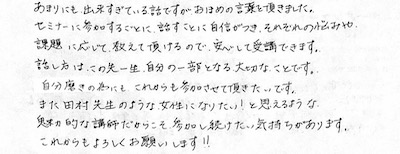 あまりにも、出来すぎている話ですがおほめの言葉を頂きました。
セミナーに参加するごとに、話すことに自信がつき、それぞれの悩みや、
課題に応じて、教えて頂けるので、安心して受講できます。
話し方は、この先一生、自分の一部となる大切なことです。
自分磨きの為にもこれからも参加させて頂きたいです。
また田村先生のような女性になりたい！と思えるような
魅力的な講師だからこそ、参加し続けたい気持ちがあります。
これからもよろしくお願いします!!